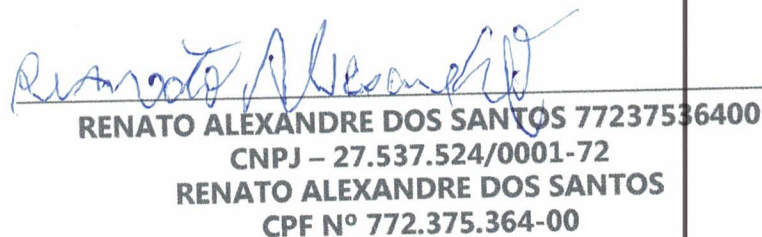 Renato Alexandre
RENATO ALEXANDRE DOS SANTOS 77237536400
CNPJ – 27.537.524/0001-72
RENATO ALEXANDRE DOS SANTOS
CPF Nº 772.375.364-00